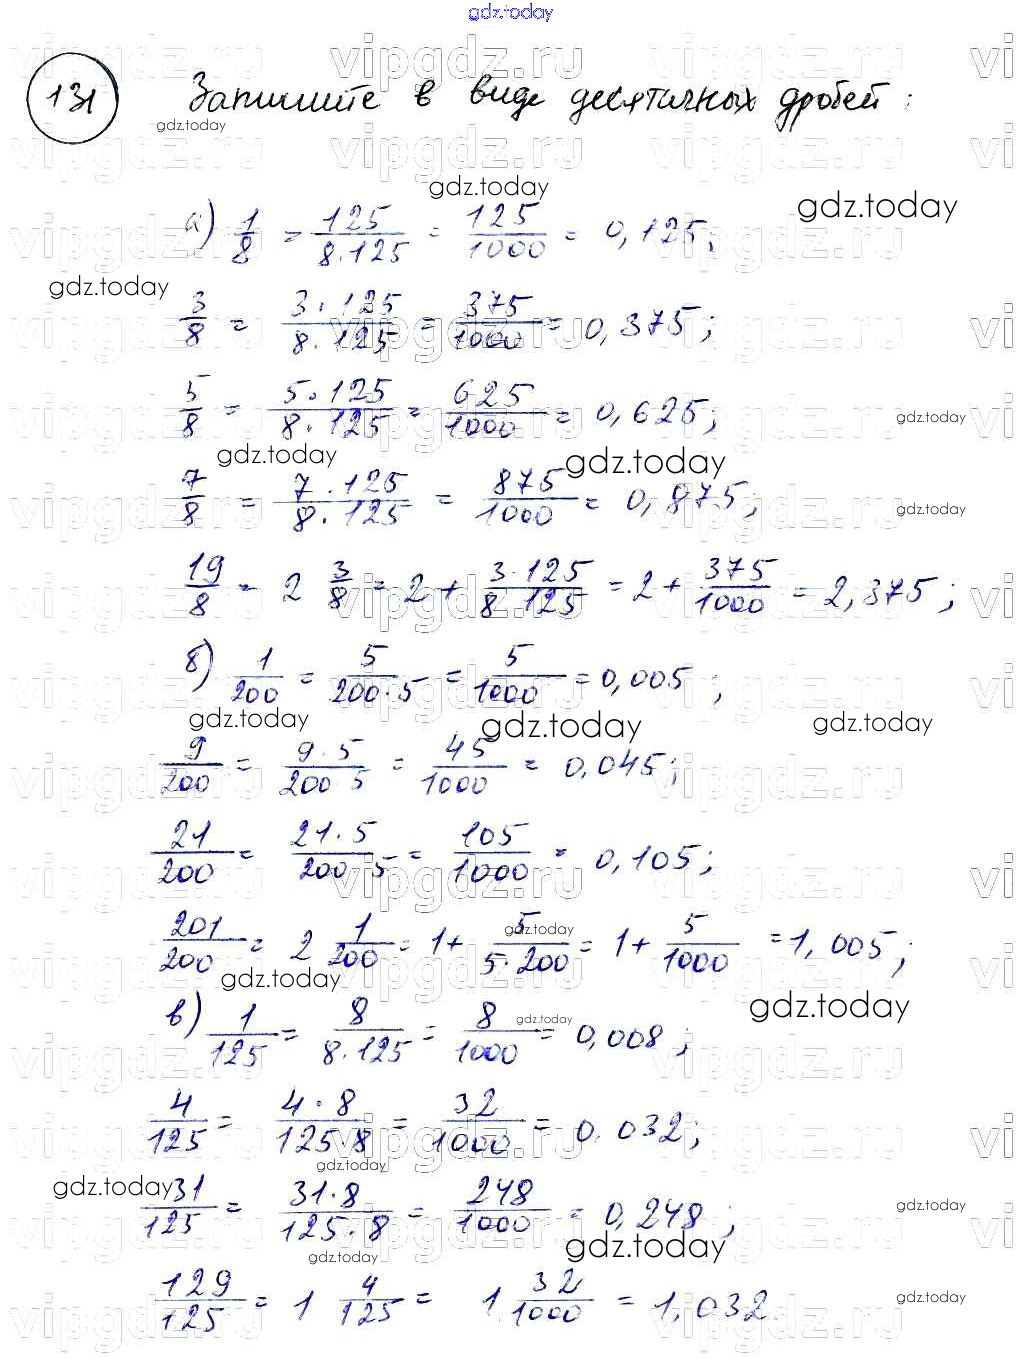 gdz.today
131 Запишите в виде десятичных дробей:
а) 1/8 = 125/8·125 = 125/1000 = 0,125;
3/8 = 3·125/8·125 = 375/1000 = 0,375;
5/8 = 5·125/8·125 = 625/1000 = 0,625;
7/8 = 7·125/8·125 = 875/1000 = 0,875;
19/8 = 2 3/8 = 2 + 3·125/8·125 = 2 + 375/1000 = 2,375;
б) 1/200 = 5/200·5 = 5/1000 = 0,005;
9/200 = 9·5/200·5 = 45/1000 = 0,045;
21/200 = 21·5/200·5 = 105/1000 = 0,105;
201/200 = 2 1/200 = 1 + 5/5·200 = 1 + 5/1000 = 1,005;
в) 1/125 = 8/8·125 = 8/1000 = 0,008;
4/125 = 4·8/125·8 = 32/1000 = 0,032;
31/125 = 31·8/125·8 = 248/1000 = 0,248;
129/125 = 1 4/125 = 1 32/1000 = 1,032.